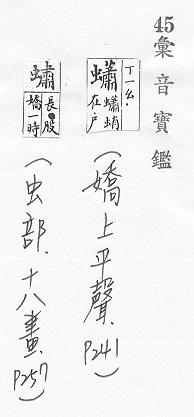 45彙音寶鑑
ㄒㄧㄠ
蠨
蠨蛸
在戶
(嬌上平聲.P241)
蟰
長●股
嬌一時
(虫部.十八畫.P257)